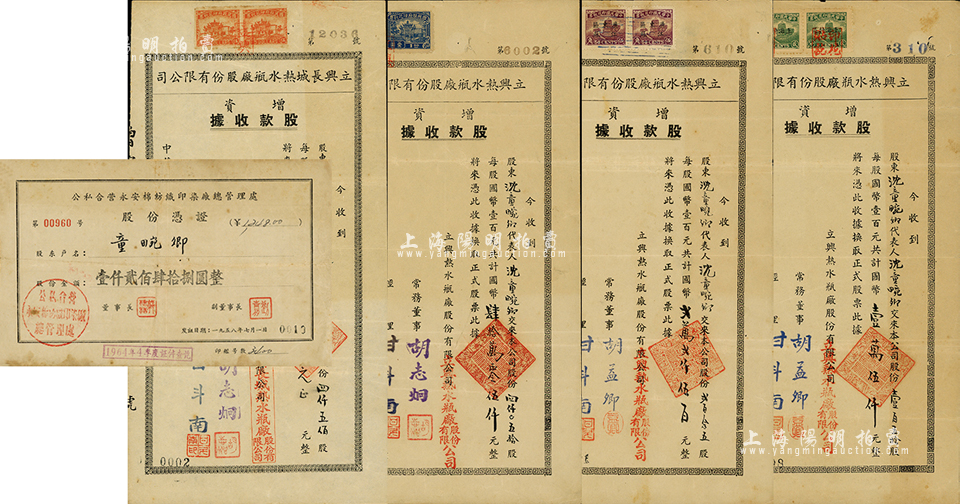 第 12036 號
立興長城熱水瓶廠股份有限公司
增資
股款收據
今收到
份四仟五佰股
元整
胡志炯
甘斗南
0002
公私合营永安棉紡織印染廠總管理處
第 00960 号
股份憑證
(¥1,248.00)
股东户名:
童晼卿
股份金額:
壹仟貳佰肆拾捌圓整
董事長
副董事長
發証日期:一九五八年七月一日
0010
印鑑号数
公私合营
總管理處
第 6002 號
立興熱水瓶廠股份有限
增資
股款收據
今收到
股東沈童晼卿代表人沈童晼卿交來本公司股份四仟〇五拾股
每股國幣壹百元共計國幣肆拾萬〇伍仟元整
將來憑此收據換取正式股票此據
立興熱水瓶廠股份有限公司
常務董事
胡志炯
甘斗南
第 610 號
立興熱水瓶廠股份有限
增資
股款收據
今收到
股東沈童晼卿代表人沈童晼卿交來本公司股份貳百貳拾五股
每股國幣壹百元共計國幣貳萬貳仟伍百元整
將來憑此收據換取正式股票此據
立興熱水瓶廠股份有限公司
常務董事
胡孟卿
甘斗南
第 310 號
立興熱水瓶廠股份有限
增資
股款收據
今收到
股東沈童晼卿代表人沈童晼卿交來本公司股份壹百五拾股
每股國幣壹百元共計國幣壹萬伍仟元整
將來憑此收據換取正式股票此據
立興熱水瓶廠股份有限公司
常務董事
胡孟卿
甘斗南
上海陽明拍賣
www.yangmingauction.com
上海陽明拍賣
www.yangmingauction.com